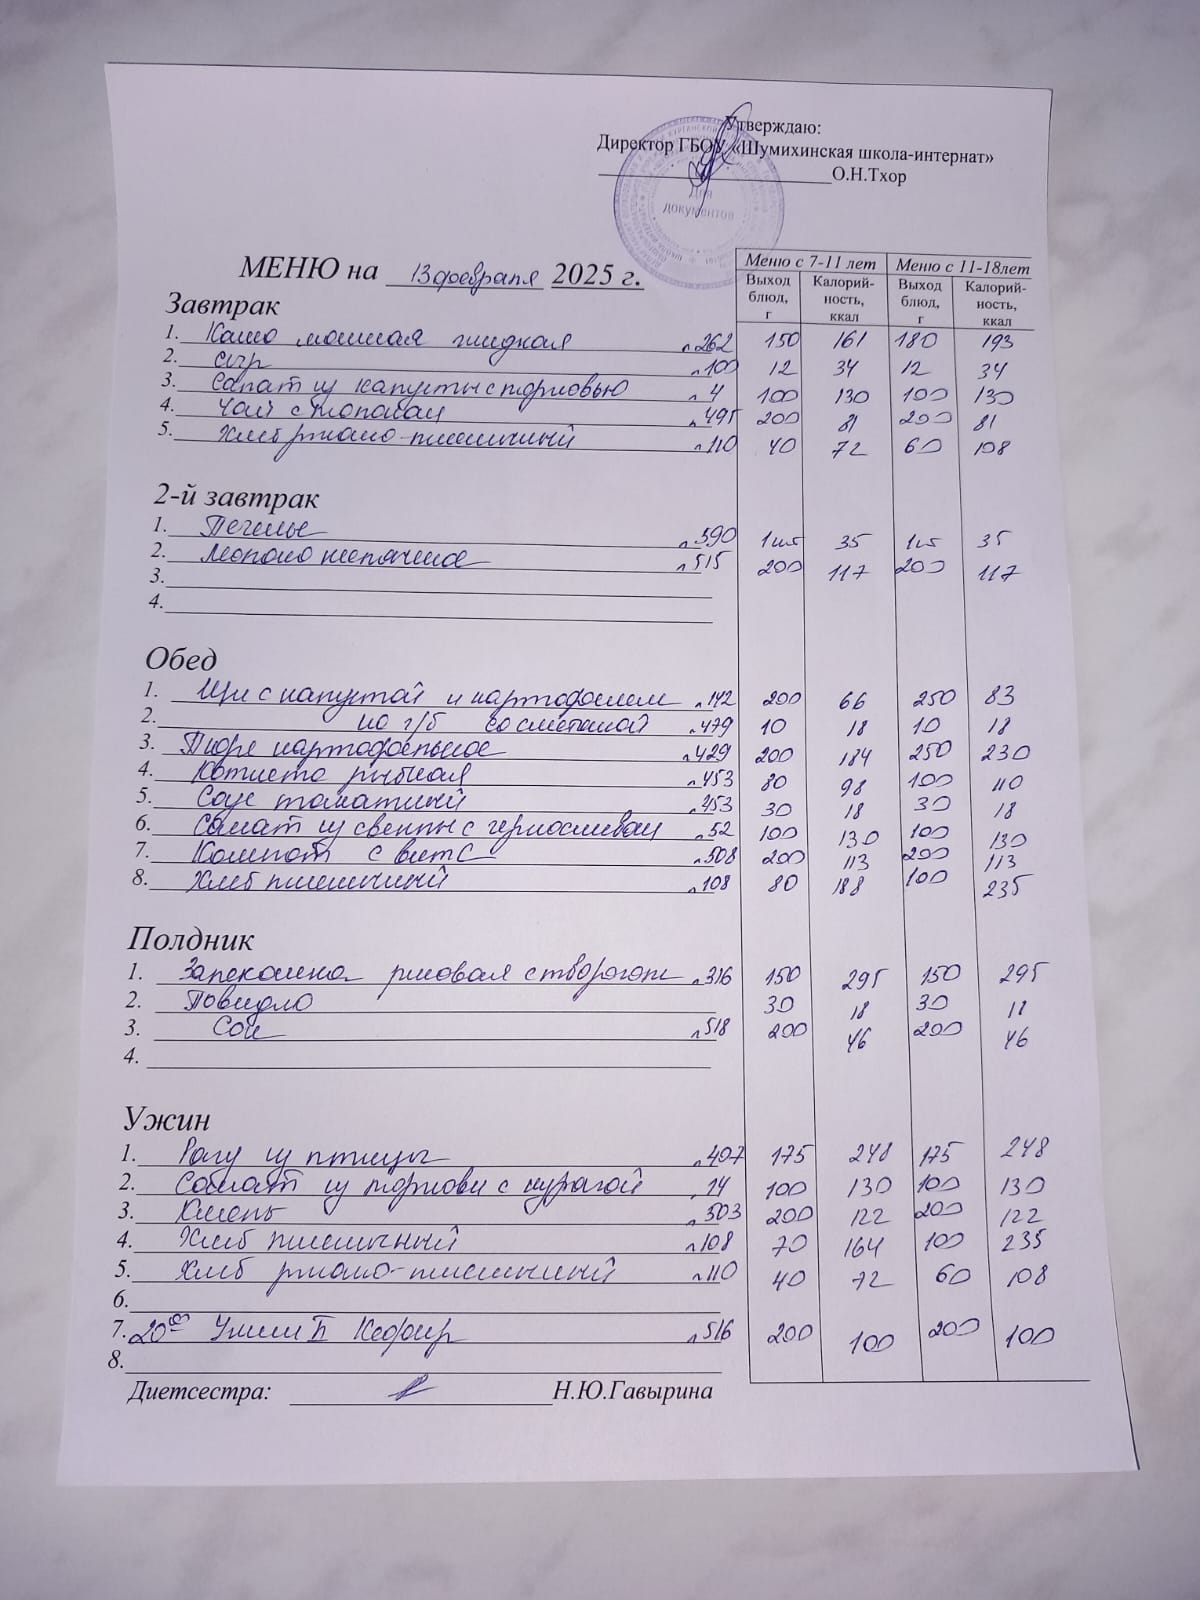 Утверждаю:
Директор ГБОУ «Шумихинская школа-интернат»
О.Н.Тхор
Для документов
МЕНЮ на 13 февраля 2025 г.
Меню с 7-11 лет Меню с 11-18лет
Выход блюд, г Калорий-ность, ккал Выход блюд, г Калорий-ность, ккал
Завтрак
1. Каша манная жидкая л.262 150 161 180 193
2. Сыр л.100 12 34 12 34
3. Салат из капусты с морковью л.4 100 130 100 130
4. Чай с молоком л.495 200 81 200 81
5. Хлеб ржано-пшеничный л.110 40 72 60 108
2-й завтрак
1. Печенье л.590 1шт 35 1шт 35
2. Молоко кипяченое л.515 200 117 200 117
3.
4.
Обед
1. Щи с капустой и картофелем л.142 200 66 250 83
2. на г/б со сметаной л.479 10 18 10 18
3. Пюре картофельное л.429 200 184 250 230
4. Котлета рыбная л.453 80 98 100 110
5. Соус томатный л.453 30 18 30 18
6. Салат из свеклы с черносливом л.52 100 130 100 130
7. Компот с вит С л.508 200 113 200 113
8. Хлеб пшеничный л.108 80 188 100 235
Полдник
1. Запеканка рисовая с творогом л.316 150 295 150 295
2. Повидло 30 18 30 18
3. Сок л.518 200 46 200 46
4.
Ужин
1. Рагу из птицы л.407 175 248 175 248
2. Салат из моркови с курагой л.14 100 130 100 130
3. Кисель л.503 200 122 200 122
4. Хлеб пшеничный л.108 70 164 100 235
5. Хлеб ржано-пшеничный л.110 40 72 60 108
6.
7. 20⁰⁰ Ужин II Кефир л.516 200 100 200 100
8.
Диетсестра: Н.Ю.Гавырина